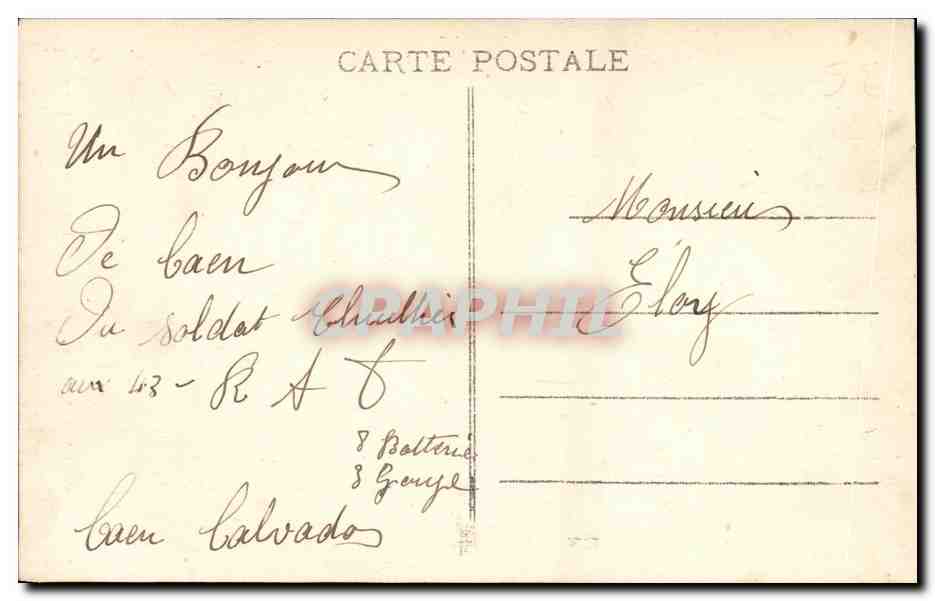 CARTE POSTALE
Un Bonjour
De Caen
Du soldat
aux 43 - R A
8 Batterie
3 Groupe
Caen Calvados
Monsieur
Éloy
CPAPHIL